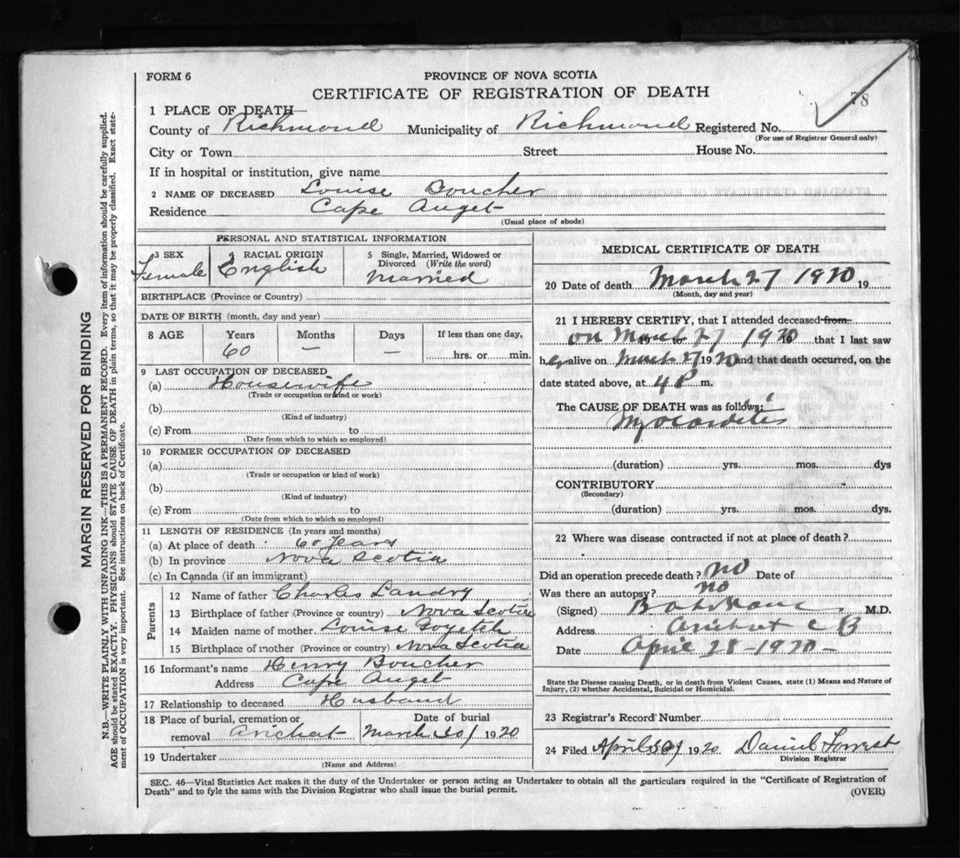 FORM 6
PROVINCE OF NOVA SCOTIA
CERTIFICATE OF REGISTRATION OF DEATH
78
1 PLACE OF DEATH—
County of Richmond Municipality of Richmond Registered No.
(For use of Registrar General only)
City or Town Street House No.
If in hospital or institution, give name
2 NAME OF DECEASED Louise Boucher
Residence Cape Auget
(Usual place of abode)
MARGIN RESERVED FOR BINDING
N.B.—WRITE PLAINLY WITH UNFADING INK—THIS IS A PERMANENT RECORD. Every item of information should be carefully supplied.
AGE should be stated EXACTLY. PHYSICIANS should STATE CAUSE OF DEATH in plain terms, so that it may be properly classified. Exact state-
ment of OCCUPATION is very important. See instructions on back of Certificate.
PERSONAL AND STATISTICAL INFORMATION
3 SEX
Female
RACIAL ORIGIN
English
5 Single, Married, Widowed or
Divorced (Write the word)
Married
BIRTHPLACE (Province or Country)
DATE OF BIRTH (month, day and year)
8 AGE Years Months Days If less than one day,
60 — — hrs. or min.
9 LAST OCCUPATION OF DECEASED
(a) Housewife
(Trade or occupation or kind or work)
(b)
(Kind of industry)
(c) From to
(Date from which to which so employed)
10 FORMER OCCUPATION OF DECEASED
(a)
(Trade or occupation or kind of work)
(b)
(Kind of industry)
(c) From to
(Date from which to which so employed)
11 LENGTH OF RESIDENCE (In years and months)
(a) At place of death 60 years
(b) In province Nova Scotia
(c) In Canada (if an immigrant)
Parents
12 Name of father Charles Landry
13 Birthplace of father (Province or country) Nova Scotia
14 Maiden name of mother Louise Goyetch
15 Birthplace of mother (Province or country) Nova Scotia
16 Informant's name Henry Boucher
Address Cape Auget
17 Relationship to deceased Husband
18 Place of burial, cremation or Date of burial
removal Arichat March 30 1920
19 Undertaker
(Name and Address)
MEDICAL CERTIFICATE OF DEATH
20 Date of death March 27 1920 19
(Month, day and year)
21 I HEREBY CERTIFY, that I attended deceased from
on March 27 1920 that I last saw
her alive on March 27 1920 and that death occurred, on the
date stated above, at 4 P m.
The CAUSE OF DEATH was as follows:
Myocarditis
(duration) yrs. mos. dys
CONTRIBUTORY
(Secondary)
(duration) yrs. mos. dys.
22 Where was disease contracted if not at place of death?
Did an operation precede death? no Date of
Was there an autopsy? no
(Signed) M.D.
Address Arichat C B
Date April 28-1920-
State the Disease causing Death, or in death from Violent Causes, state (1) Means and Nature of
Injury, (2) whether Accidental, Suicidal or Homicidal.
23 Registrar's Record Number
24 Filed April 30 1920 Daniel Forrest
Division Registrar
SEC. 46—Vital Statistics Act makes it the duty of the Undertaker or person acting as Undertaker to obtain all the particulars required in the "Certificate of Registration of
Death" and to fyle the same with the Division Registrar who shall issue the burial permit.
(OVER)